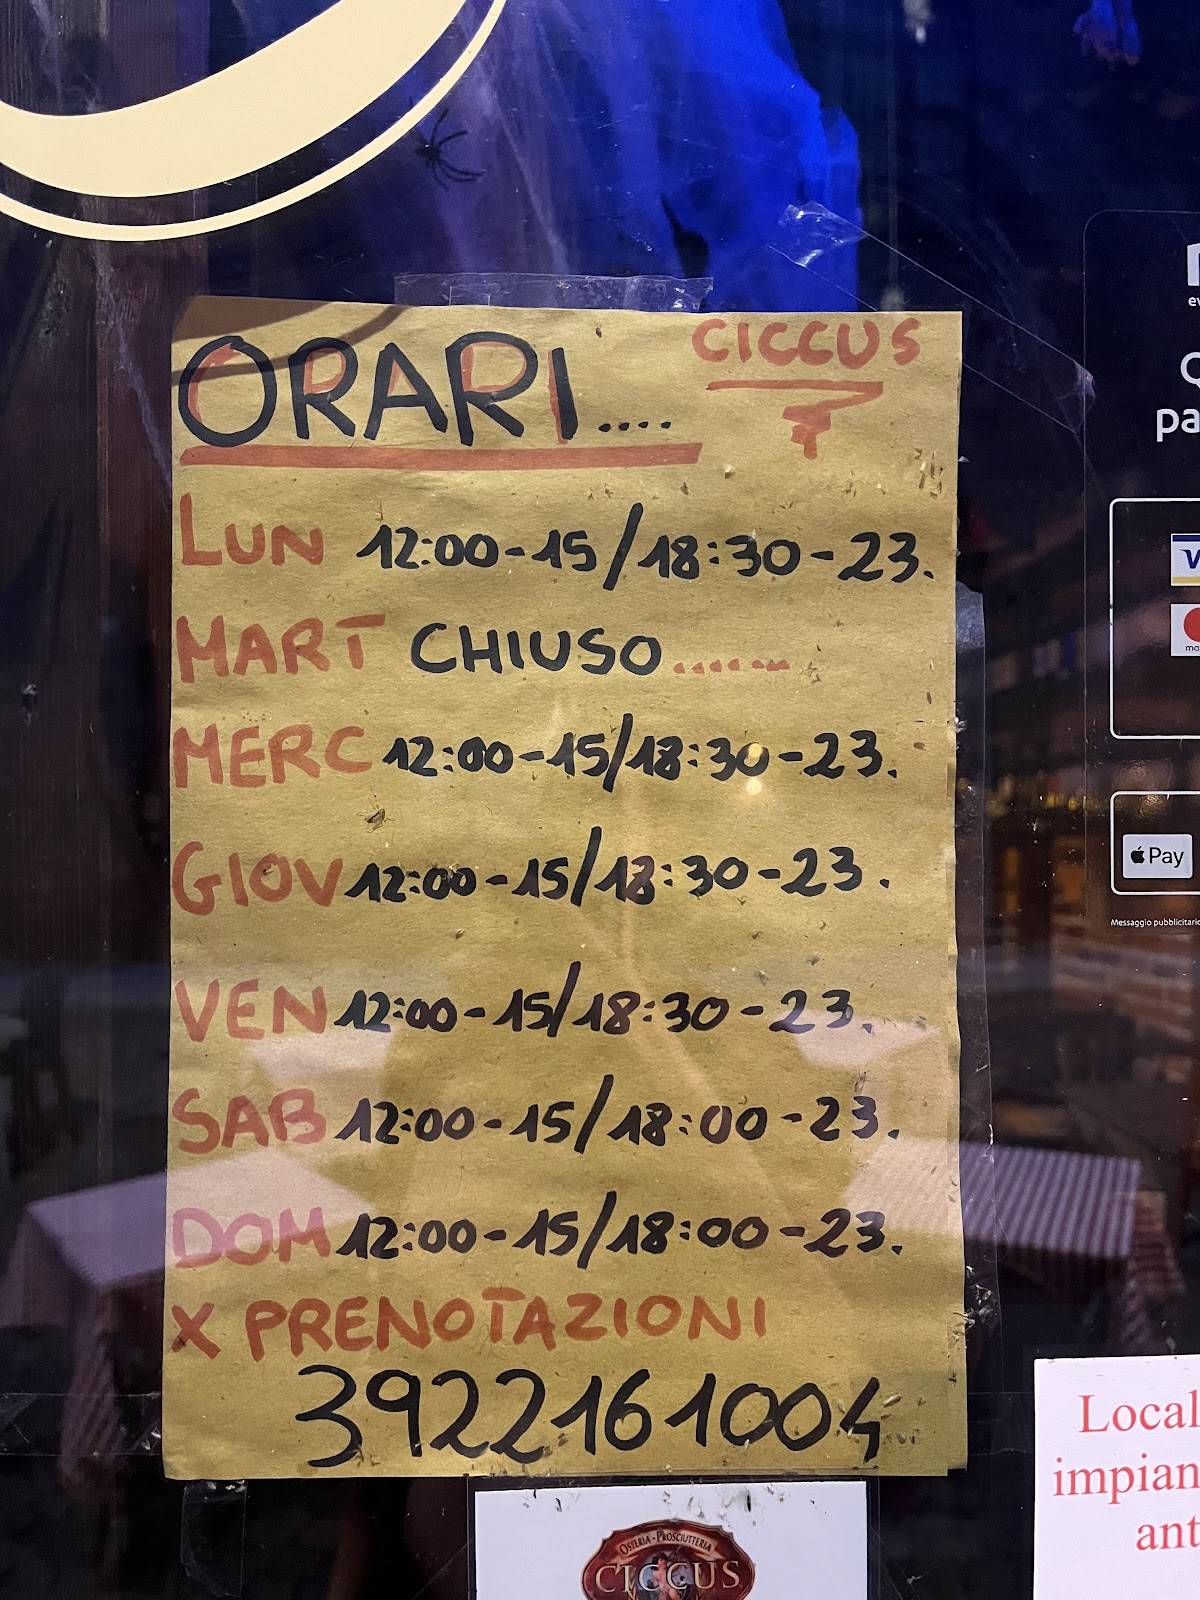 ORARI.... CICCUS
LUN 12:00-15/18:30-23.
MART CHIUSO.......
MERC 12:00-15/18:30-23.
GIOV 12:00-15/18:30-23.
VEN 12:00-15/18:30-23.
SAB 12:00-15/18:00-23.
DOM 12:00-15/18:00-23.
X PRENOTAZIONI
3922161004
OSTERIA - PROSCIUTTERIA
CICCUS
Pay
Messaggio pubblicitario
Local
impian
ant